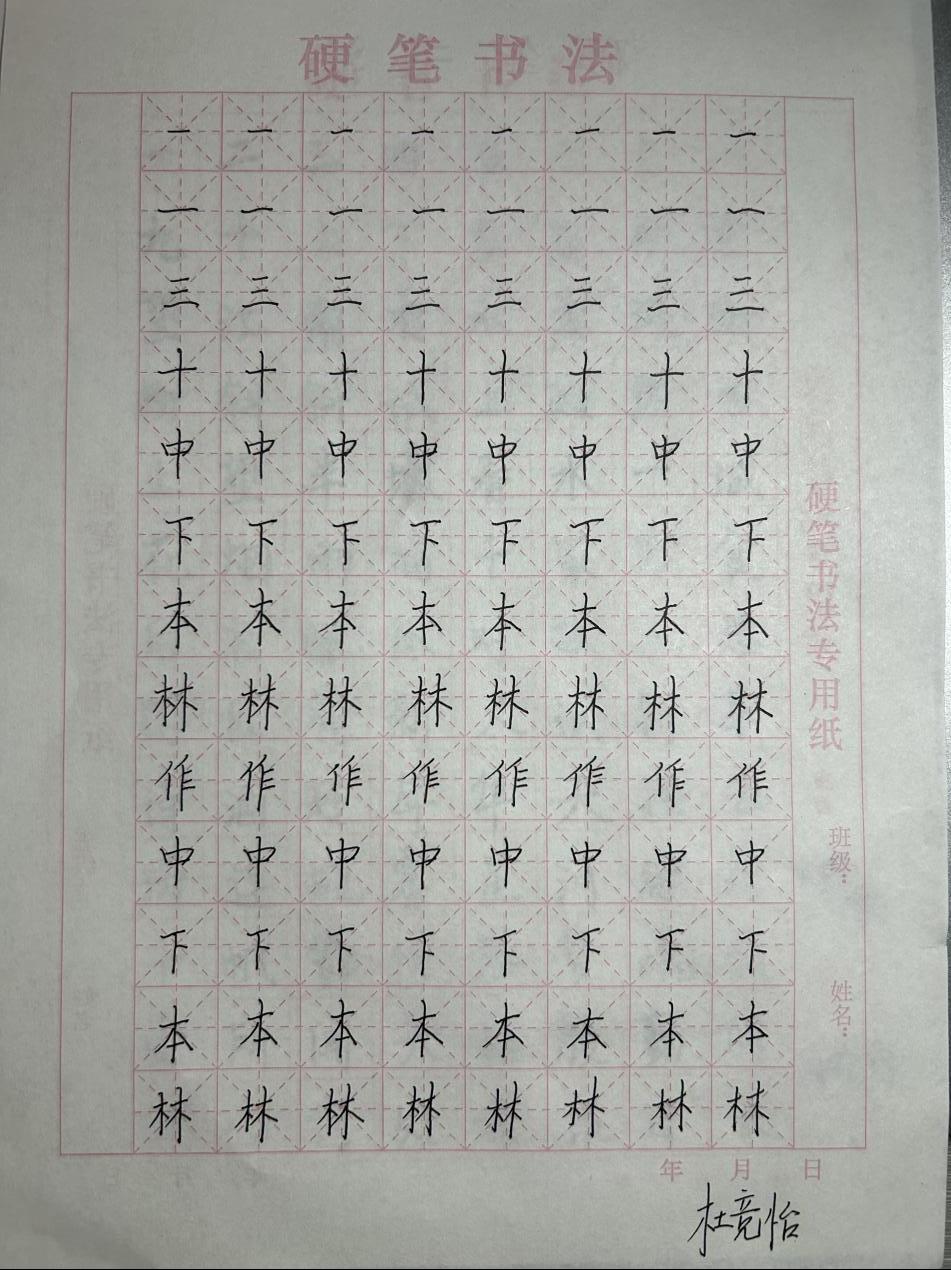 硬笔书法
一一一一一一一一
一一一一一一一一
三三三三三三三三
十十十十十十十十
中中中中中中中中
下下下下下下下下
本本本本本本本本
林林林林林林林林
作作作作作作作作
中中中中中中中中
下下下下下下下下
本本本本本本本本
林林林林林林林林
硬笔书法专用纸
班级：
姓名：
年 月 日
杜竞怡